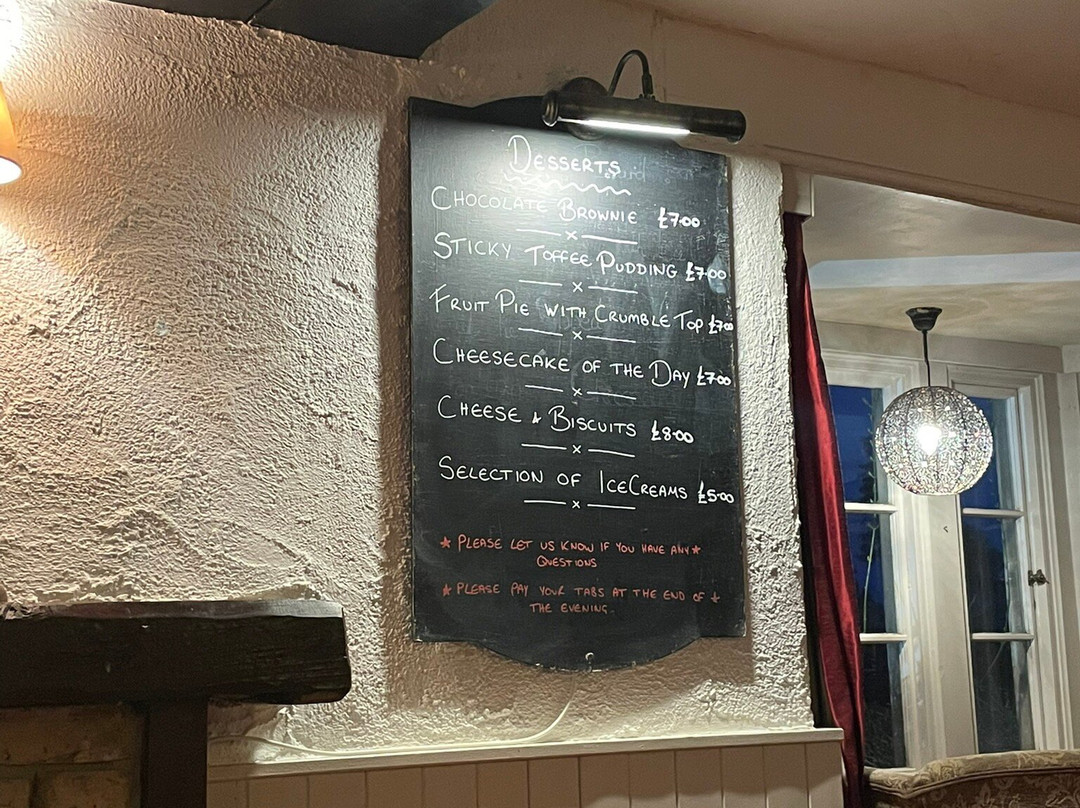 DESSERTS
CHOCOLATE BROWNIE £7.00
STICKY TOFFEE PUDDING £7.00
FRUIT PIE WITH CRUMBLE TOP £7.00
CHEESECAKE OF THE DAY £7.00
CHEESE & BISCUITS £8.00
SELECTION OF ICECREAMS £5.00
★ PLEASE LET US KNOW IF YOU HAVE ANY ★
QUESTIONS
★ PLEASE PAY YOUR TABS AT THE END OF ★
THE EVENING.